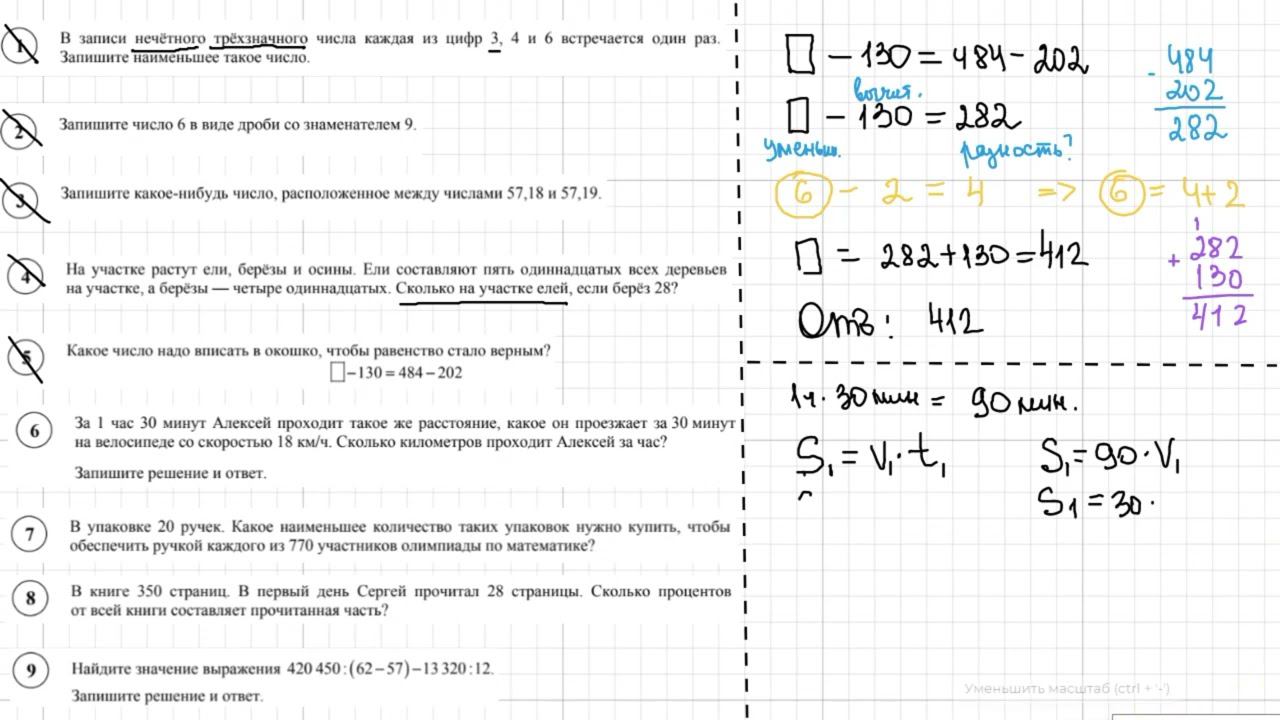 1
В записи нечётного трёхзначного числа каждая из цифр 3, 4 и 6 встречается один раз.
Запишите наименьшее такое число.
2
Запишите число 6 в виде дроби со знаменателем 9.
3
Запишите какое-нибудь число, расположенное между числами 57,18 и 57,19.
4
На участке растут ели, берёзы и осины. Ели составляют пять одиннадцатых всех деревьев
на участке, а берёзы — четыре одиннадцатых. Сколько на участке елей, если берёз 28?
5
Какое число надо вписать в окошко, чтобы равенство стало верным?
□ − 130 = 484 − 202
6
За 1 час 30 минут Алексей проходит такое же расстояние, какое он проезжает за 30 минут
на велосипеде со скоростью 18 км/ч. Сколько километров проходит Алексей за час?
Запишите решение и ответ.
7
В упаковке 20 ручек. Какое наименьшее количество таких упаковок нужно купить, чтобы
обеспечить ручкой каждого из 770 участников олимпиады по математике?
8
В книге 350 страниц. В первый день Сергей прочитал 28 страницы. Сколько процентов
от всей книги составляет прочитанная часть?
9
Найдите значение выражения 420 450 : (62 − 57) − 13 320 : 12.
Запишите решение и ответ.
□ − 130 = 484 − 202
вычит.
□ − 130 = 282
уменьш. разность?
- 484
202
282
6 − 2 = 4 => 6 = 4 + 2
□ = 282 + 130 = 412
1
+ 282
130
412
Отв: 412
1ч. 30 мин = 90 мин.
S₁ = V₁ · t₁ S₁ = 90 · V₁
S1 = 30 ·
Уменьшить масштаб (ctrl + '-')